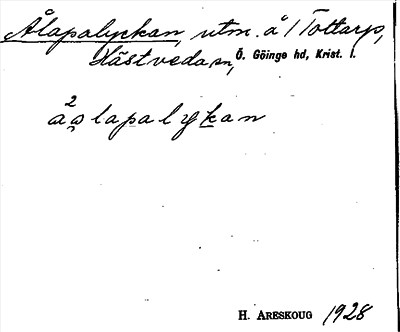 Ålapalyckan, utm. å 1 Tottarp,
Hästveda sn, Ö. Göinge hd, Krist. l.
2
aa̭lapalykan
H. ARESKOUG 1928